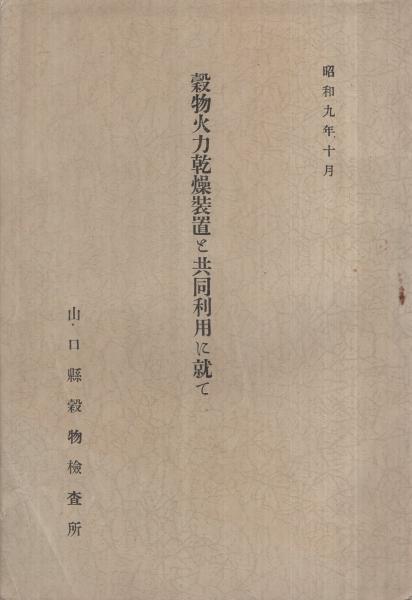 昭和九年十月
穀物火力乾燥裝置と共同利用に就て
山口縣穀物檢査所